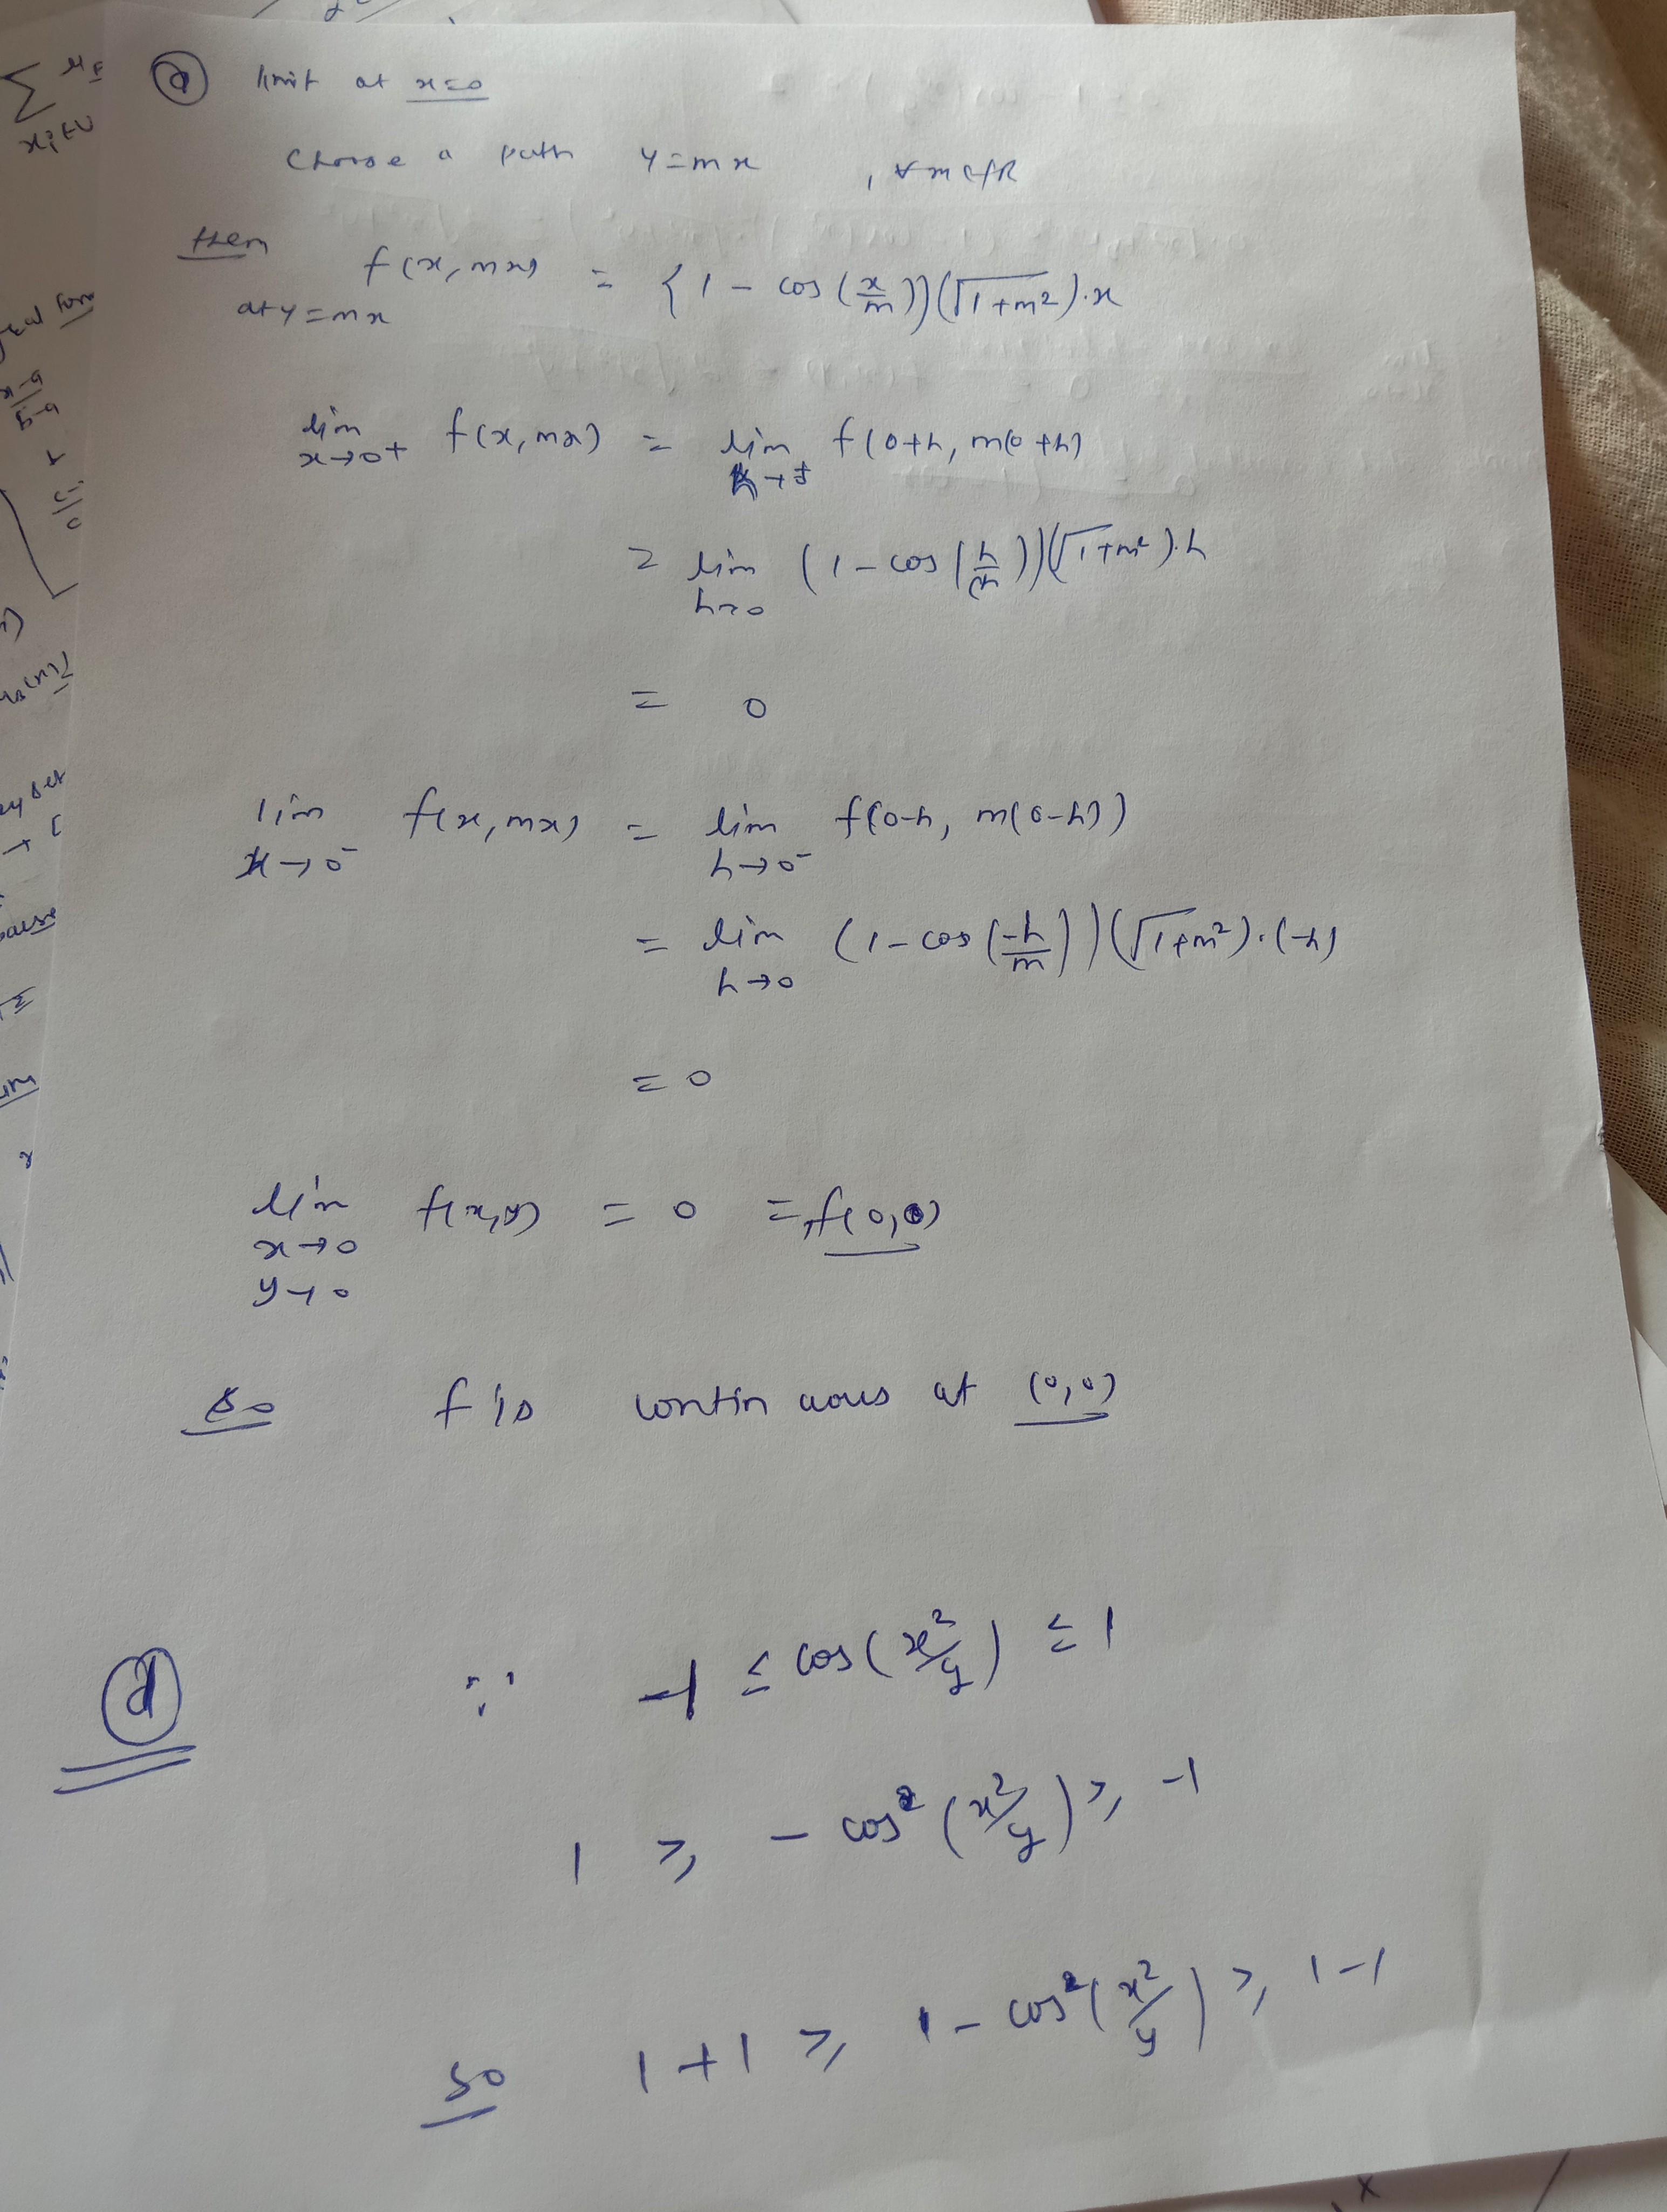 ⓐ limit at x=0
Choose a path y=mx , ∀ m ∈ ℝ
then f(x,mx) = {1 - cos(x/m)}(√(1+m²)).x
at y=mx
lim f(x,mx) = lim f(0+h, m(0+h)
x→0+
= lim (1 - cos(h/m))(√(1+m²)).h
h→0
= 0
lim f(x,mx) = lim f(0-h, m(0-h))
x→0⁻ h→0⁻
= lim (1-cos(-h/m))(√(1+m²)).(-h)
h→0
= 0
lim f(x,y) = 0 = f(0,0)
x→0
y→0
So f is continuous at (0,0)
ⓓ ∵ -1 ≤ cos(x²/y) ≤ 1
1 ≥ - cos²(x²/y) ≥ -1
So 1+1 ≥ 1 - cos²(x²/y) ≥ 1-1